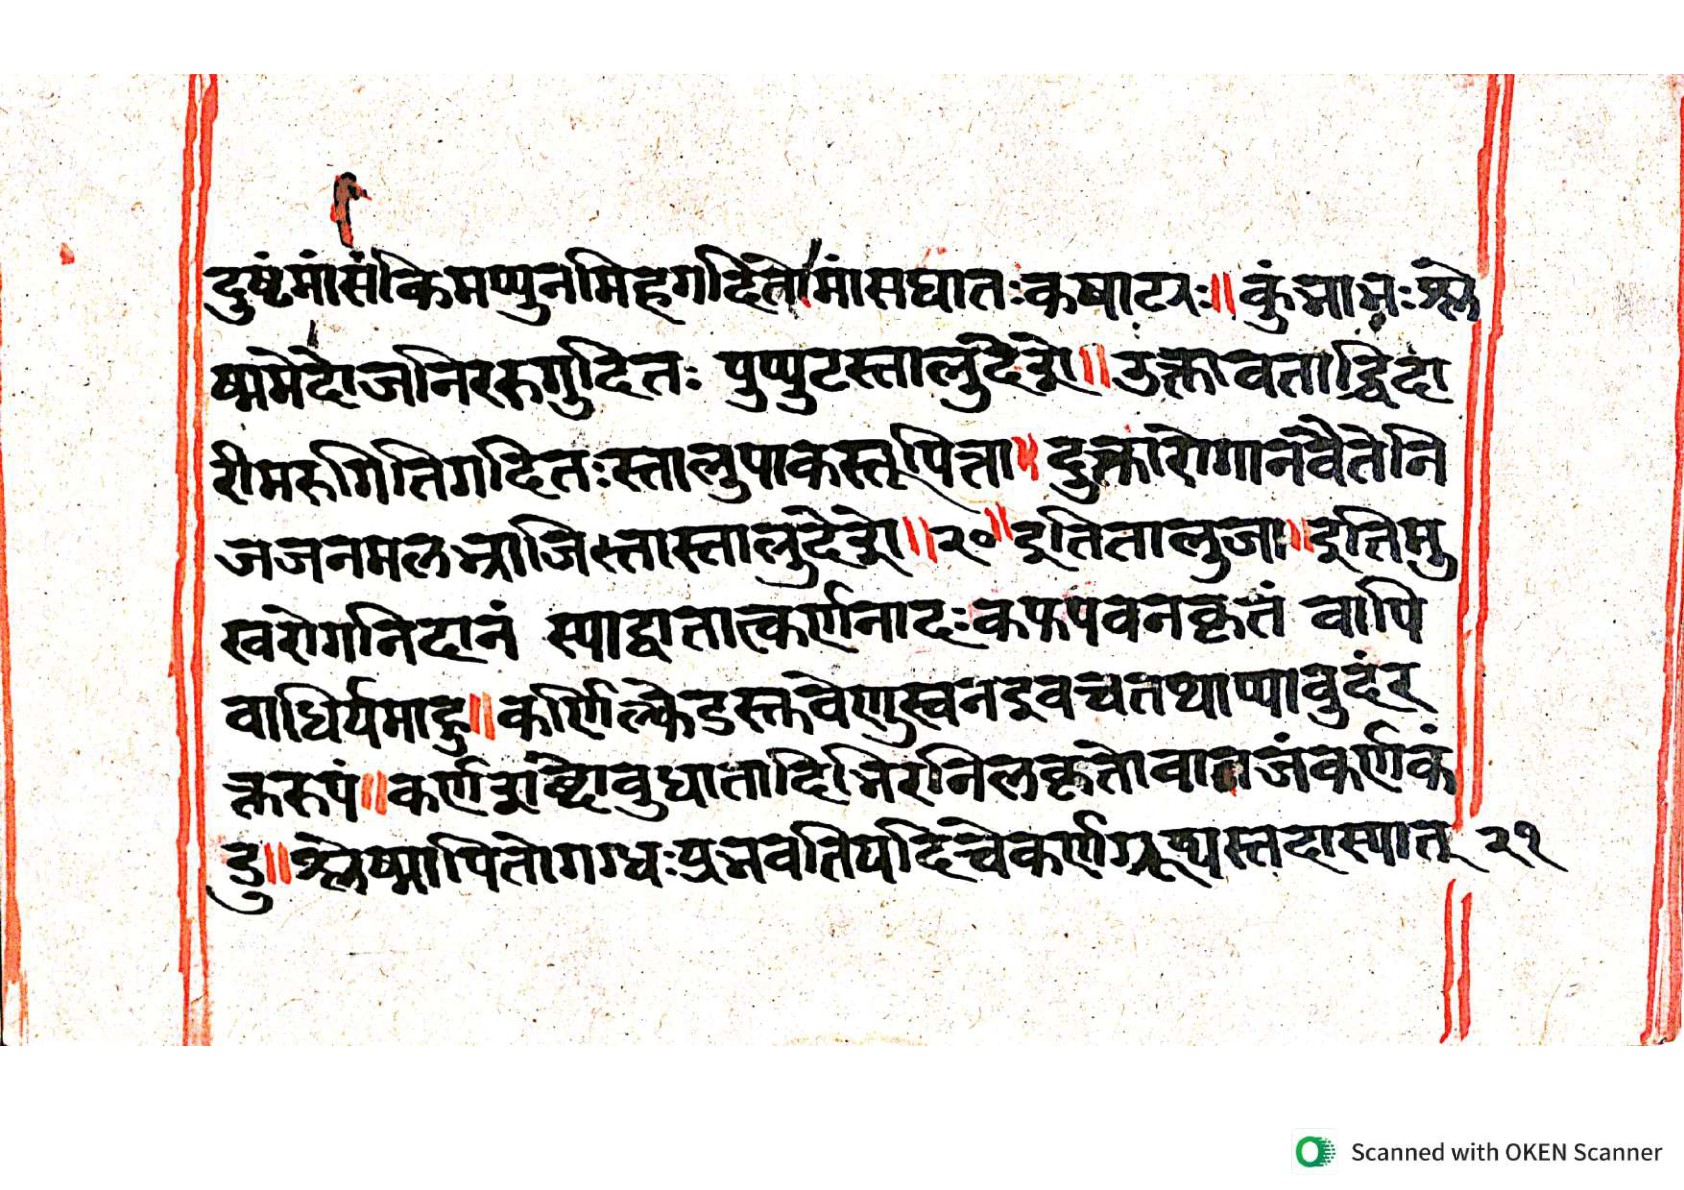 दुष्टंमांसंकिमप्युनमिहगदितोमांसघातःकषाटरः॥कुंभाभःश्ले
ष्ममेदोजनिररुगुदितः पुप्पुटस्तालुदेशे॥उक्तावताद्विदा
रीमरुगितिगदितःस्तालुपाकस्तूपित्ता॥दुक्तारोगानवैतेनि
जजनमलभ्राजिस्तास्तालुदेशे॥२०॥इतितालुजा॥इतिमु
खरोगनिदानं स्याद्वातात्कर्णनादःकफपवनकृतं वापि
वाधिर्यमाहु॥कर्णिल्फेडस्तवेणुस्वनइवचतथाप्यावुदंर
क्तरूपं॥कर्णशष्टोवुघातादिभिरनिलकृतोवातजंकर्णकं
डु॥श्लेष्मापितोगग्धःप्रभवतियदिचेकर्णग्रूथ्यस्तदास्यात् २१
Scanned with OKEN Scanner